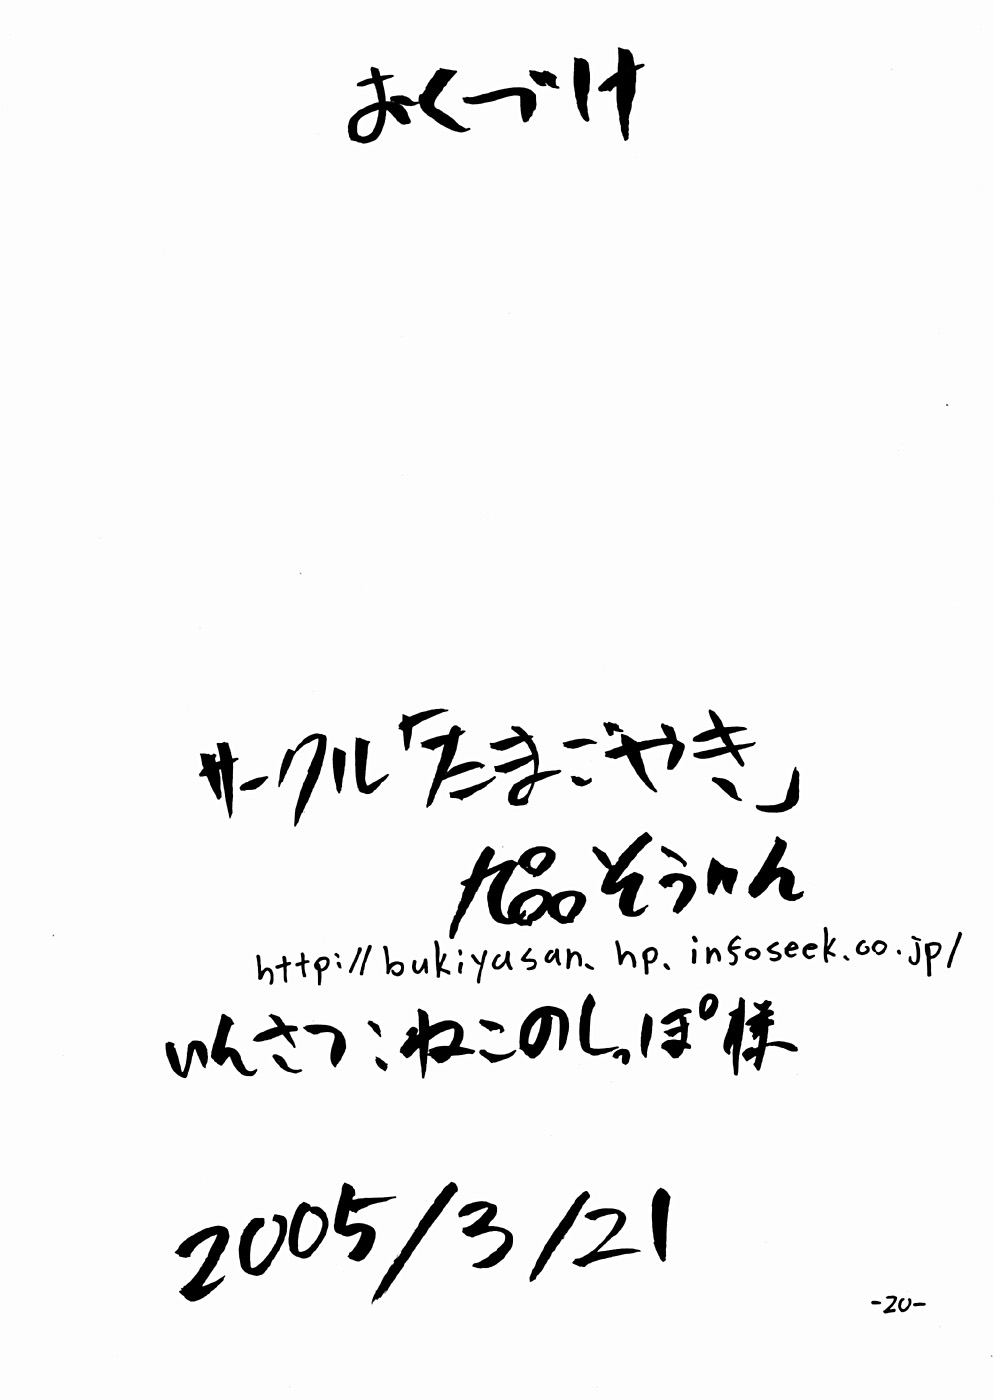 おくづけ
サークル「たまごやき」
九品そういん
http://bukiyasan.hp.infoseek.co.jp/
いんさつ:ねこのしっぽ様
2005/3/21
-20-